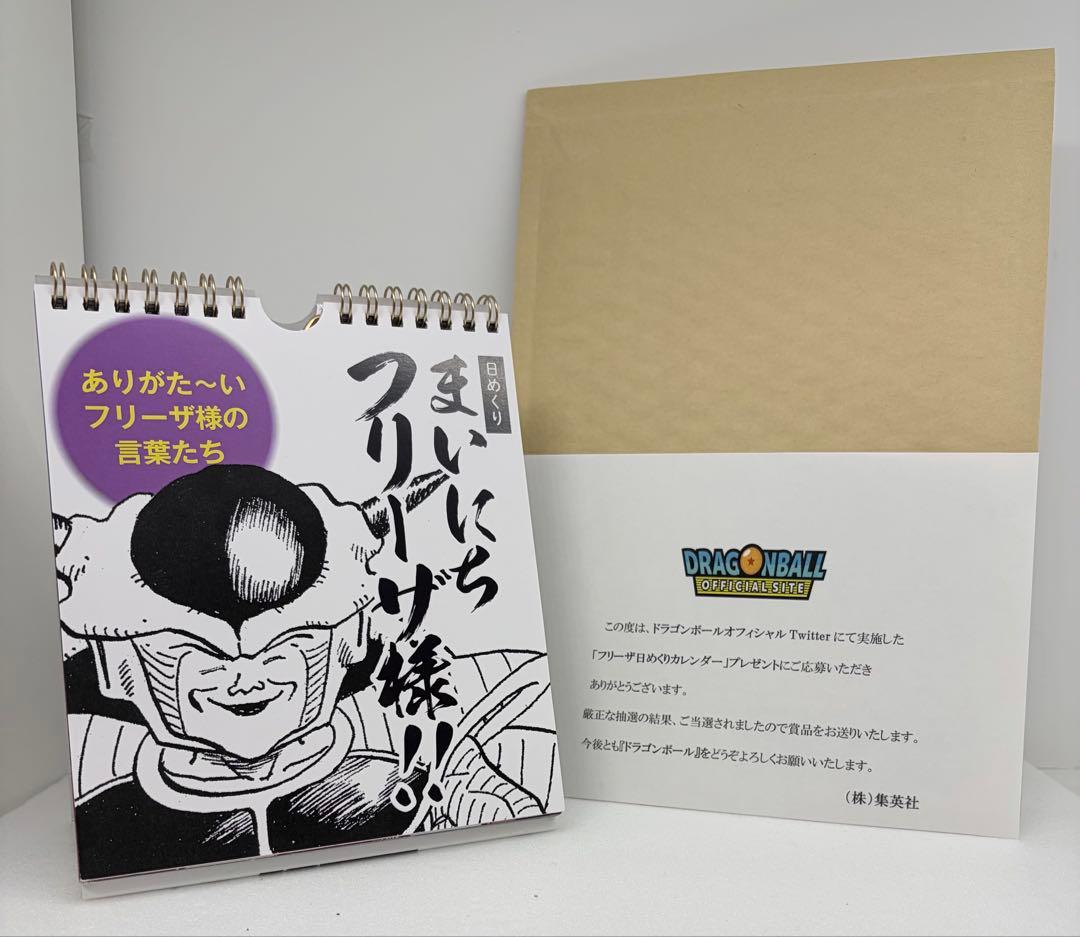 ありがた～い
フリーザ様の
言葉たち
日めくり
まいにち
フリーザ様!!
DRAGONBALL
OFFICIAL SITE
この度は、ドラゴンボールオフィシャル Twitter にて実施した
「フリーザ日めくりカレンダー」プレゼントにご応募いただき
ありがとうございます。
厳正な抽選の結果、ご当選されましたので賞品をお送りいたします。
今後とも『ドラゴンボール』をどうぞよろしくお願いいたします。
(株)集英社